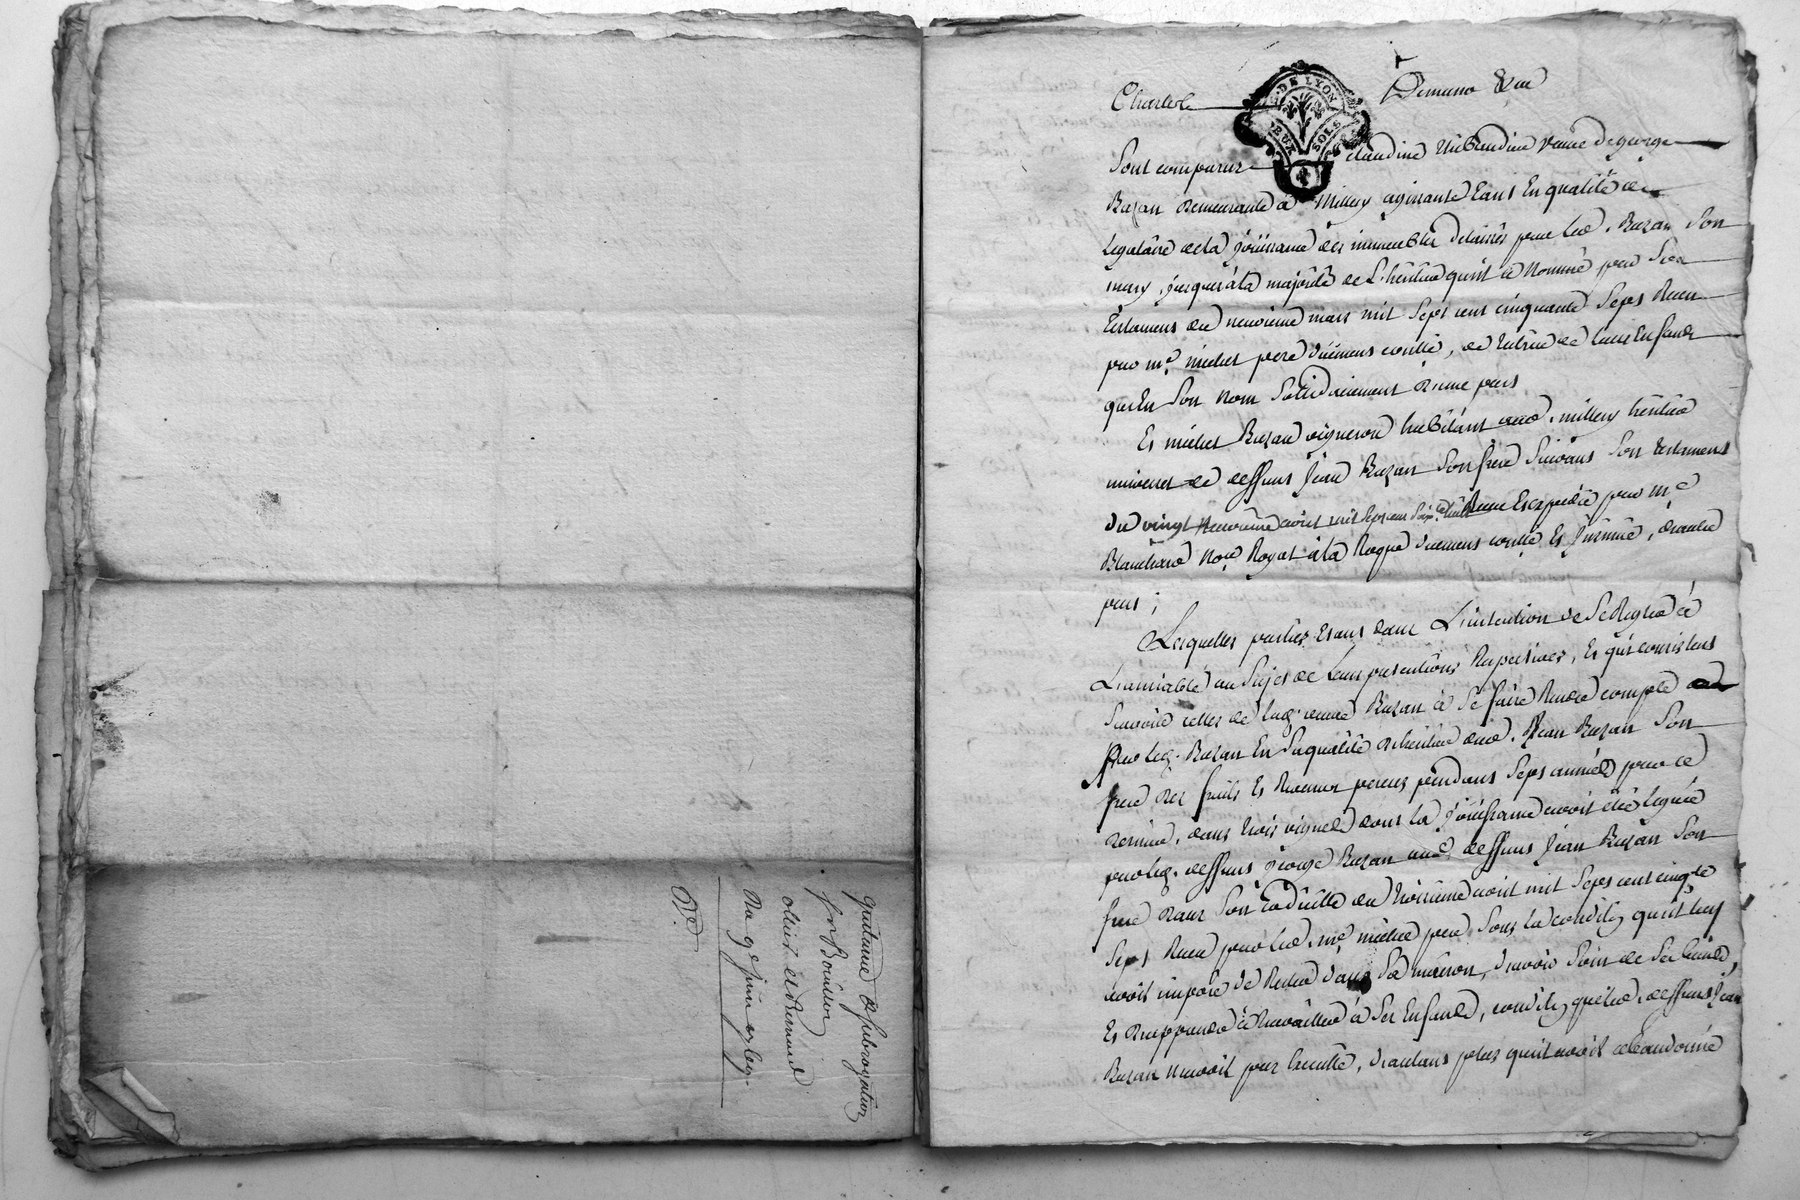 quittance et subrogation
pour Bouillon
du 9e juin
G. DE LYON
DEUX SOLS
Sont comparus claudine veuve de george
Bazan demeurante à Millery agissante tant En qualité de
Legataire de la joüissance des immeubles delaissés par led. Bazan Son
mary, jusques à la majorité de L'heritier qu'il a Nommé par Son
testament du neuvieme mars mil Sept cent cinquante Sept Receu
par me. michel pere duëment controllé, de tutrice de leurs Enfants
qu'en Son Nom Solidairement d'une part
Et michel Bazan vigneron habitant aud. millery heritier
universel de deffunt Jean Bazan Son frere Suivant Son testament
du vingt neuvieme avril mil Sept cent Receu Et expedié par me
Blanchard Nore. Royal à la duement controllé Et Insinué, d'autre
part ;
Lesquelles parties Etant dans L'intention de Se Regler à
L'amiable au Sujet de Leurs pretentions Respectives, Et qui consistent
Sçavoir celles de lad. veuve Bazan à Se faire Rendre compte
par led. Bazan En Sa qualité d'heritier dud. Jean Bazan Son
frere des fruits Et Revenus perçus pendant Sept années par ce
dernier, dans trois vignes dont la joüissance avoit été leguée
par led. deffunt george Bazan aud. deffunt Jean Bazan Son
frere dans Son Codicille du troisieme avril mil Sept cent cinqte.
Sept Receu par led. me. michel pere Sous la condition qu'il luy
avoit imposé de Rester dans Sa maison, d'avoir Soin de Ses
Et d'apprendre à travailler à Ses Enfants, condition que led. deffunt Jean
Bazan n'avoit pas Executé, d'autant plus qu'il avoit abandonné